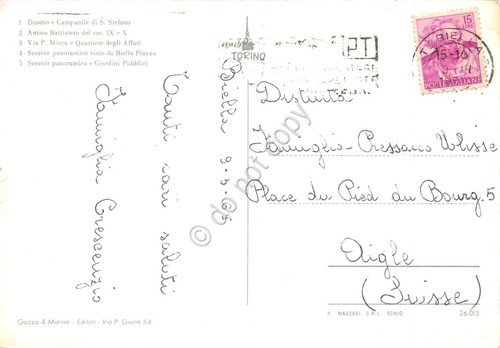 1 Duomo e Campanile di S. Stefano
2 Antico Battistero del sec. IX e X
3 Via P. Micca e Quartiere degli Affari
4 Scorcio panoramico visto da Biella Piazzo
5 Scorcio panoramico e Giardini Pubblici
TORINO
PT
15 LIRE
BIELLA
15-16
POSTE ITALIANE
Biella 9-3-65
Tanti cari saluti
Famiglia Crescenzio
Distinta
Famiglia-Pressano Ulisse
Place du Pied du Bourg. 5
Aigle
(Suisse)
do not copy
Gozzo & Marina - Editori - Via P. Giuria 54
P. MARZARI S.R.L. SCHIO
26.013